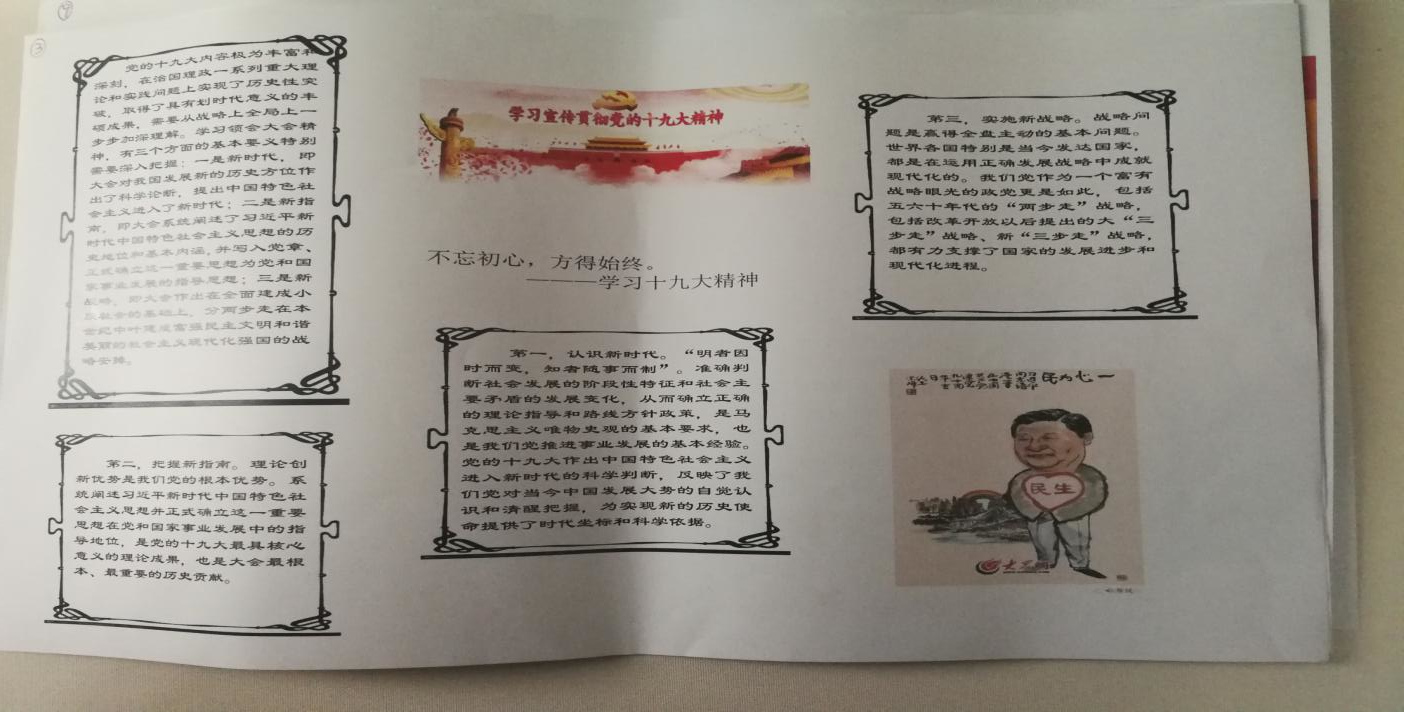 ③
党的十九大内容极为丰富和
深刻，在治国理政一系列重大理
论和实践问题上实现了历史性突
破，取得了具有划时代意义的丰
硕成果，需要从战略上全局上一
步步加深理解。学习领会大会精
神，有三个方面的基本要义特别
需要深入把握：一是新时代，即
大会对我国发展新的历史方位作
出了科学论断，提出中国特色社
会主义进入了新时代；二是新指
南，即大会系统阐述了习近平新
时代中国特色社会主义思想的历
史地位和基本内涵，并写入党章、
正式确立这一重要思想为党和国
家事业发展的指导思想；三是新
战略，即大会作出在全面建成小
康社会的基础上，分两步走在本
世纪中叶建成富强民主文明和谐
美丽的社会主义现代化强国的战
略安排。
第二，把握新指南。理论创
新优势是我们党的根本优势。系
统阐述习近平新时代中国特色社
会主义思想并正式确立这一重要
思想在党和国家事业发展中的指
导地位，是党的十九大最具核心
意义的理论成果，也是大会最根
本、最重要的历史贡献。
学习宣传贯彻党的十九大精神
不忘初心，方得始终。
———学习十九大精神
第一，认识新时代。“明者因
时而变，知者随事而制”。准确判
断社会发展的阶段性特征和社会主
要矛盾的发展变化，从而确立正确
的理论指导和路线方针政策，是马
克思主义唯物史观的基本要求，也
是我们党推进事业发展的基本经验。
党的十九大作出中国特色社会主义
进入新时代的科学判断，反映了我
们党对当今中国发展大势的自觉认
识和清醒把握，为实现新的历史使
命提供了时代坐标和科学依据。
第三，实施新战略。战略问
题是赢得全盘主动的基本问题。
世界各国特别是当今发达国家，
都是在运用正确发展战略中成就
现代化的。我们党作为一个富有
战略眼光的政党更是如此，包括
五六十年代的“两步走”战略，
包括改革开放以后提出的大“三
步走”战略、新“三步走”战略，
都有力支撑了国家的发展进步和
现代化进程。
民为心一
民生
大众网